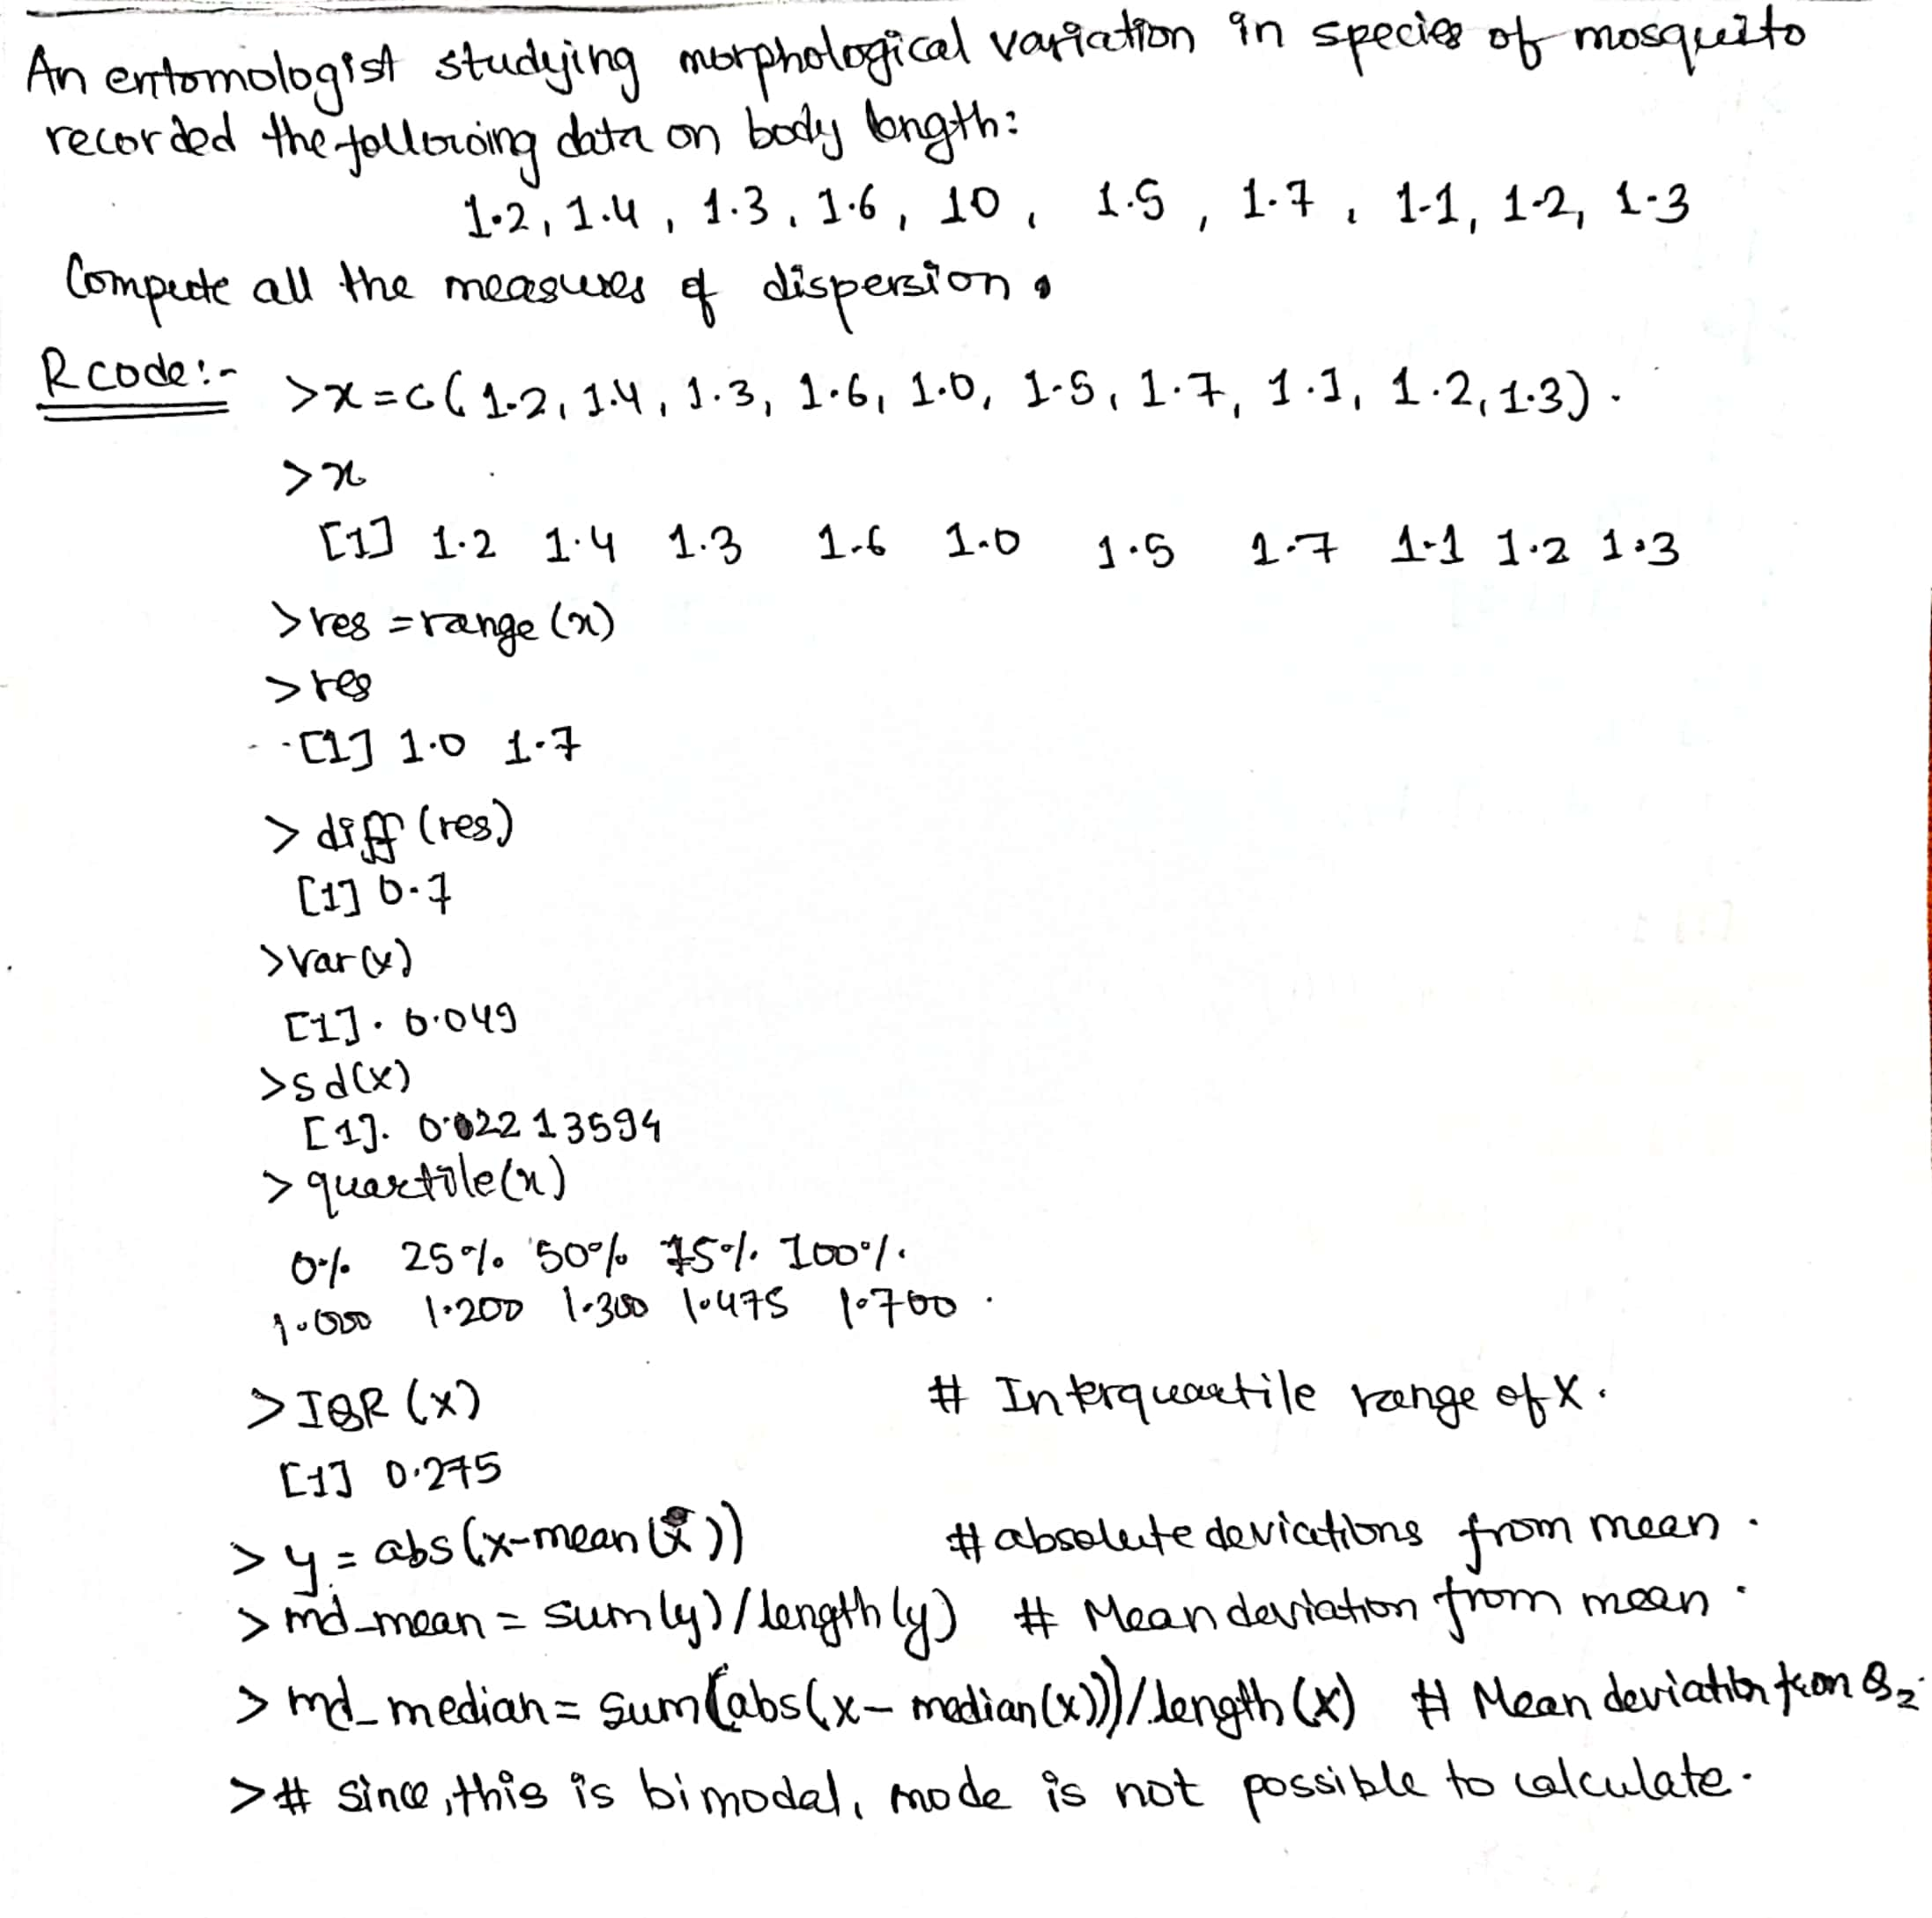 An entomologist studying morphological variation in species of mosquito
recorded the following data on body length:
1.2, 1.4, 1.3, 1.6, 10, 1.5, 1.7, 1.1, 1.2, 1.3
Compute all the measures of dispersion.
R code:- >x=c(1.2, 1.4, 1.3, 1.6, 1.0, 1.5, 1.7, 1.1, 1.2, 1.3).
>x
[1] 1.2 1.4 1.3 1.6 1.0 1.5 1.7 1.1 1.2 1.3
>res = range (x)
>res
[1] 1.0 1.7
> diff (res)
[1] 0.7
>var(x)
[1]. 0.049
>sd(x)
[1]. 0.02213594
> quartile(x)
0% 25% 50% 75% 100%.
1.000 1.200 1.300 1.475 1.700.
>IQR (x) # Interquartile range of X.
[1] 0.275
> y = abs(x-mean(x)) # absolute deviations from mean.
> md_mean = sum(y)/length(y) # Mean deviation from mean.
> md_median = sum(abs(x- median(x)))/length(x) # Mean deviation from Q2.
> # since, this is bimodal, mode is not possible to calculate.